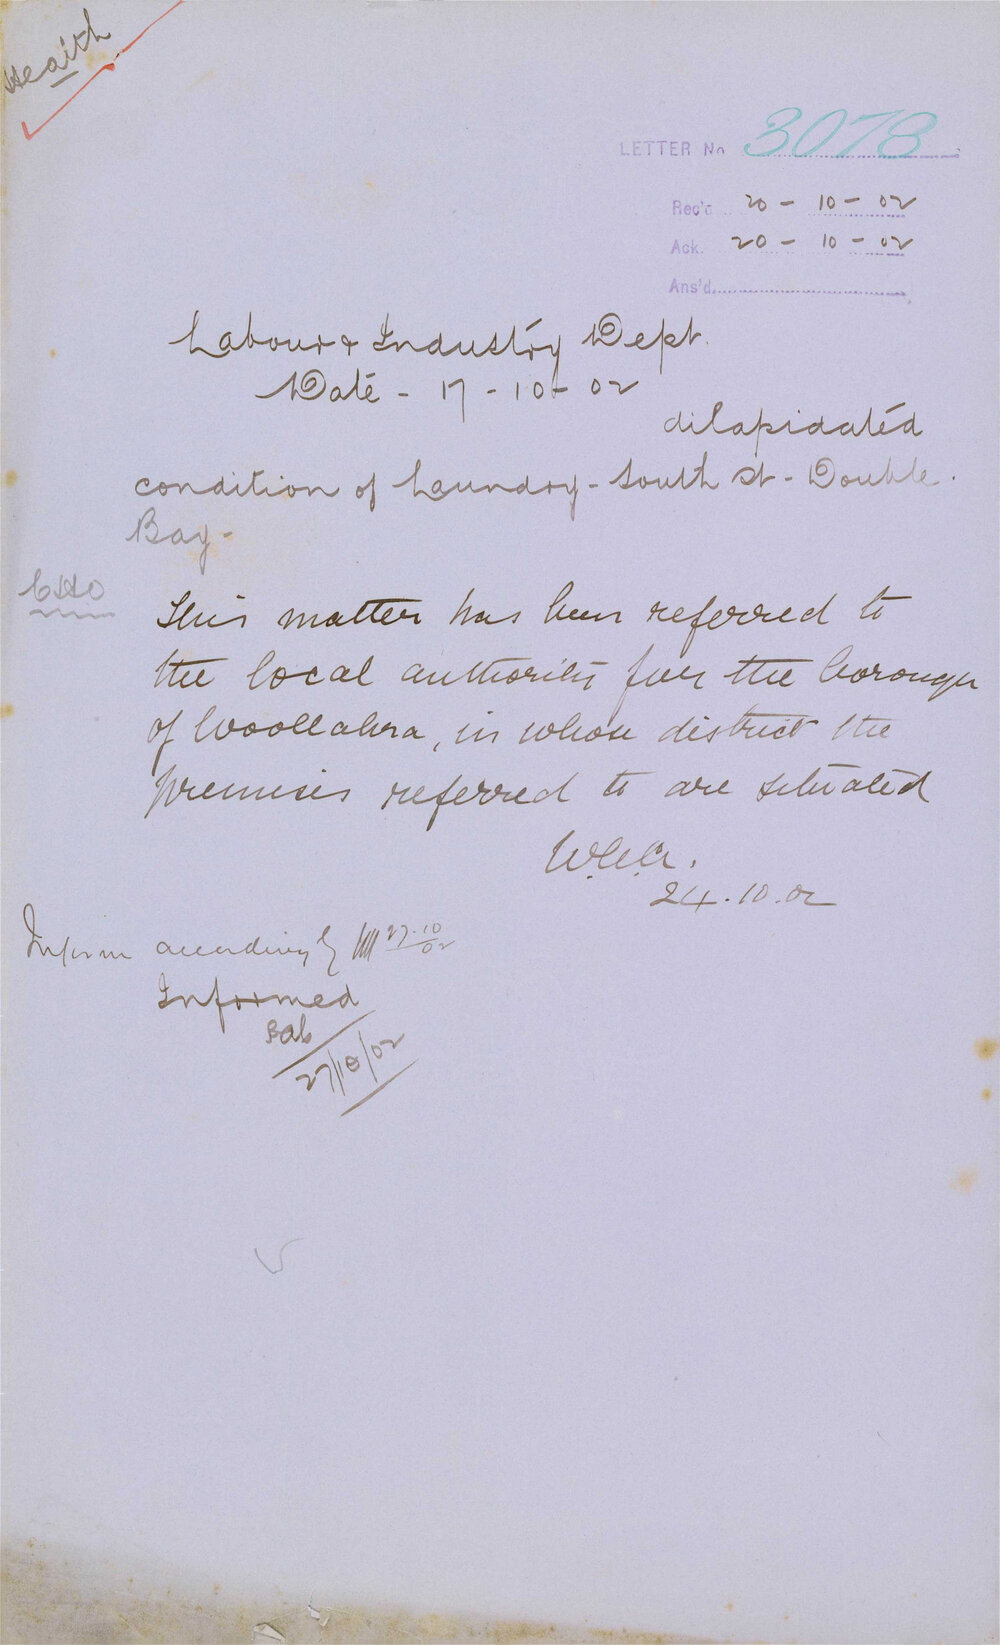 Health
LETTER No 3078
Rec'd 20 - 10 - 02
Ack. 20 - 10 - 02
Ans'd
Labour & Industry Dept.
Date - 17 - 10 - 02
dilapidated
condition of Laundry - South St - Double
Bay -
CHO
This matter has been referred to
the local authority for the borough
of Woollahra, in whose district the
premises referred to are situated
24.10.02
Inform accordingly 27.10
02
Informed
27/10/02